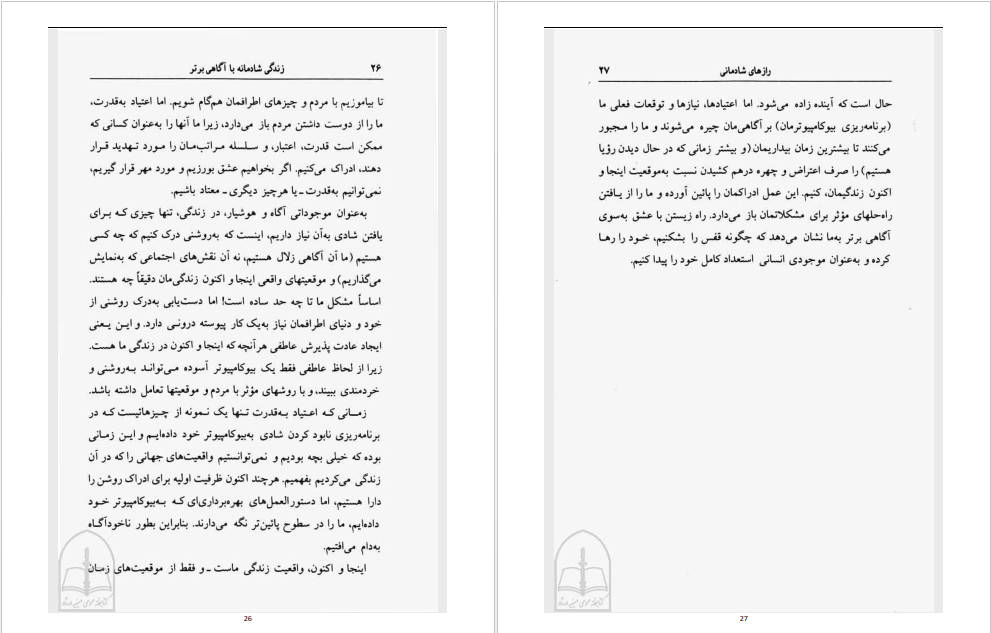 ۲۶ زندگی شادمانه با آگاهی برتر
تا بیاموزیم با مردم و چیزهای اطرافمان هم‌گام شویم. اما اعتیاد به‌قدرت،
ما را از دوست داشتن مردم باز می‌دارد، زیرا ما آنها را به‌عنوان کسانی که
ممکن است قدرت، اعتبار، و سلسله مراتب‌مان را مورد تهدید قرار
دهند، ادراک می‌کنیم. اگر بخواهیم عشق بورزیم و مورد مهر قرار گیریم،
نمی‌توانیم به‌قدرت ـ یا هرچیز دیگری ـ معتاد باشیم.
به‌عنوان موجوداتی آگاه و هوشیار، در زندگی، تنها چیزی که برای
یافتن شادی به‌آن نیاز داریم، اینست که به‌روشنی درک کنیم که چه کسی
هستیم (ما آن آگاهی زلال هستیم، نه آن نقش‌های اجتماعی که به‌نمایش
می‌گذاریم) و موقعیتهای واقعی اینجا و اکنون زندگی‌مان دقیقاً چه هستند.
اساساً مشکل ما تا چه حد ساده است! اما دست‌یابی به‌درک روشنی از
خود و دنیای اطرافمان نیاز به‌یک کار پیوسته درونی دارد. و این یعنی
ایجاد عادت پذیرش عاطفی هرآنچه که اینجا و اکنون در زندگی ما هست.
زیرا از لحاظ عاطفی فقط یک بیوکامپیوتر آسوده می‌تواند به‌روشنی و
خردمندی ببیند، و با روشهای مؤثر با مردم و موقعیتها تعامل داشته باشد.
زمانی که اعتیاد به‌قدرت تنها یک نمونه از چیزهائیست که در
برنامه‌ریزی نابود کردن شادی به‌بیوکامپیوتر خود داده‌ایم و این زمانی
بوده که خیلی بچه بودیم و نمی‌توانستیم واقعیت‌های جهانی را که در آن
زندگی می‌کردیم بفهمیم. هرچند اکنون ظرفیت اولیه برای ادراک روشن را
دارا هستیم، اما دستورالعمل‌های بهره‌برداری‌ای که به‌بیوکامپیوتر خود
داده‌ایم، ما را در سطوح پائین‌تر نگه می‌دارند. بنابراین بطور ناخودآگاه
به‌دام می‌افتیم.
اینجا و اکنون، واقعیت زندگی ماست ـ و فقط از موقعیت‌های زمان
26
رازهای شادمانی ۲۷
حال است که آینده زاده می‌شود. اما اعتیادها، نیازها و توقعات فعلی ما
(برنامه‌ریزی بیوکامپیوترمان) بر آگاهی‌مان چیره می‌شوند و ما را مجبور
می‌کنند تا بیشترین زمان بیداریمان (و بیشتر زمانی که در حال دیدن رؤیا
هستیم) را صرف اعتراض و چهره درهم کشیدن نسبت به‌موقعیت اینجا و
اکنون زندگیمان، کنیم. این عمل ادراکمان را پائین آورده و ما را از یافتن
راه‌حلهای مؤثر برای مشکلاتمان باز می‌دارد. راه زیستن با عشق به‌سوی
آگاهی برتر به‌ما نشان می‌دهد که چگونه قفس را بشکنیم، خود را رها
کرده و به‌عنوان موجودی انسانی استعداد کامل خود را پیدا کنیم.
27